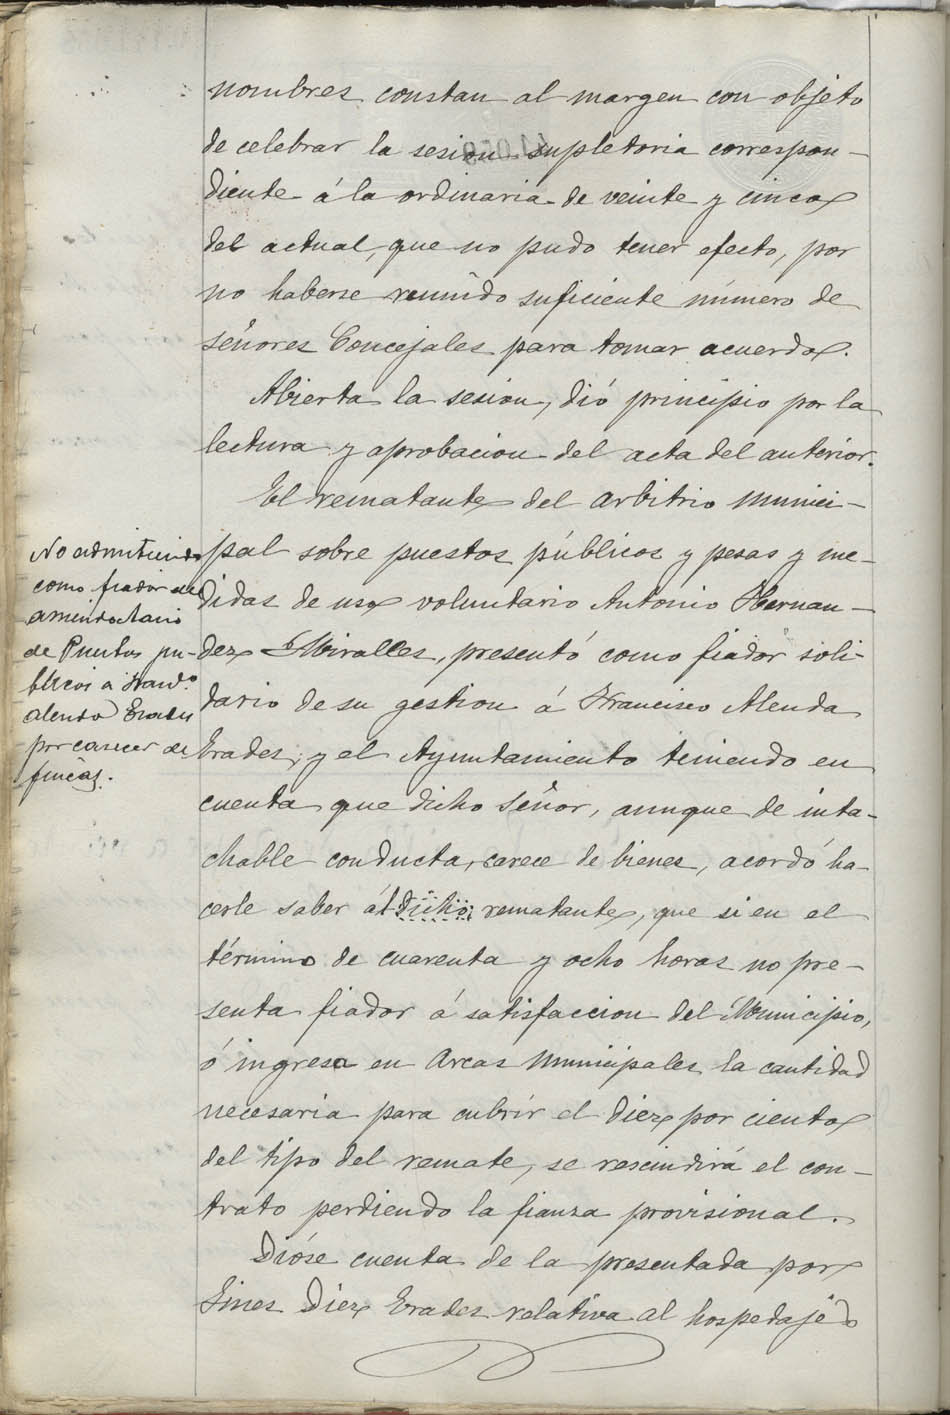 nombres constan al margen con objeto
de celebrar la sesion supletoria correspon-
diente á la ordinaria de veinte y cinco
del actual, que no pudo tener efecto, por
no haberse reunido suficiente número de
señores Concejales para tomar acuerdo.
Abierta la sesion, dió principio por la
lectura y aprobacion del acta del anterior.
El rematante del arbitrio munici-
pal sobre puestos públicos y pesas y me-
didas de uso voluntario Antonio Hernan-
dez Miralles, presentó como fiador soli-
dario de su gestion á Francisco Alenda
Erades, y el Ayuntamiento teniendo en
cuenta que dicho Señor, aunque de inta-
chable conducta, carece de bienes, acordó ha-
cerle saber ál dicho rematante, que si en el
término de cuarenta y ocho horas no pre-
senta fiador á satisfaccion del Municipio,
ó ingresa en Arcas Municipales la cantidad
necesaria para cubrir el diez por ciento
del tipo del remate, se rescindirá el con-
trato perdiendo la fianza provisional.
Dióse cuenta de la presentada por
Gines Diez Erades relativa al hospedaje
No admitiendo
como fiador del
arrendatario
de Puestos pu-
blicos a Fran.co
Alenda Erades
por carecer de
fincas.